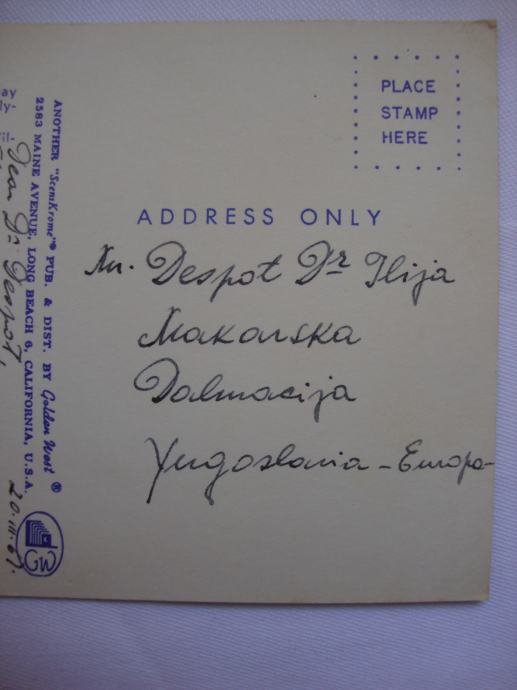 PLACE
STAMP
HERE
ADDRESS ONLY
Despot Dr Ilija
Makarska
Dalmacija
Yugoslavia - Europa -
ANOTHER "ScemKrome"® PUB. & DIST. BY Golden West ®
2583 MAINE AVENUE, LONG BEACH 6, CALIFORNIA, U.S.A.
GW
Dear Dr. Despot,
20.III.67.
ay
ly-
il-